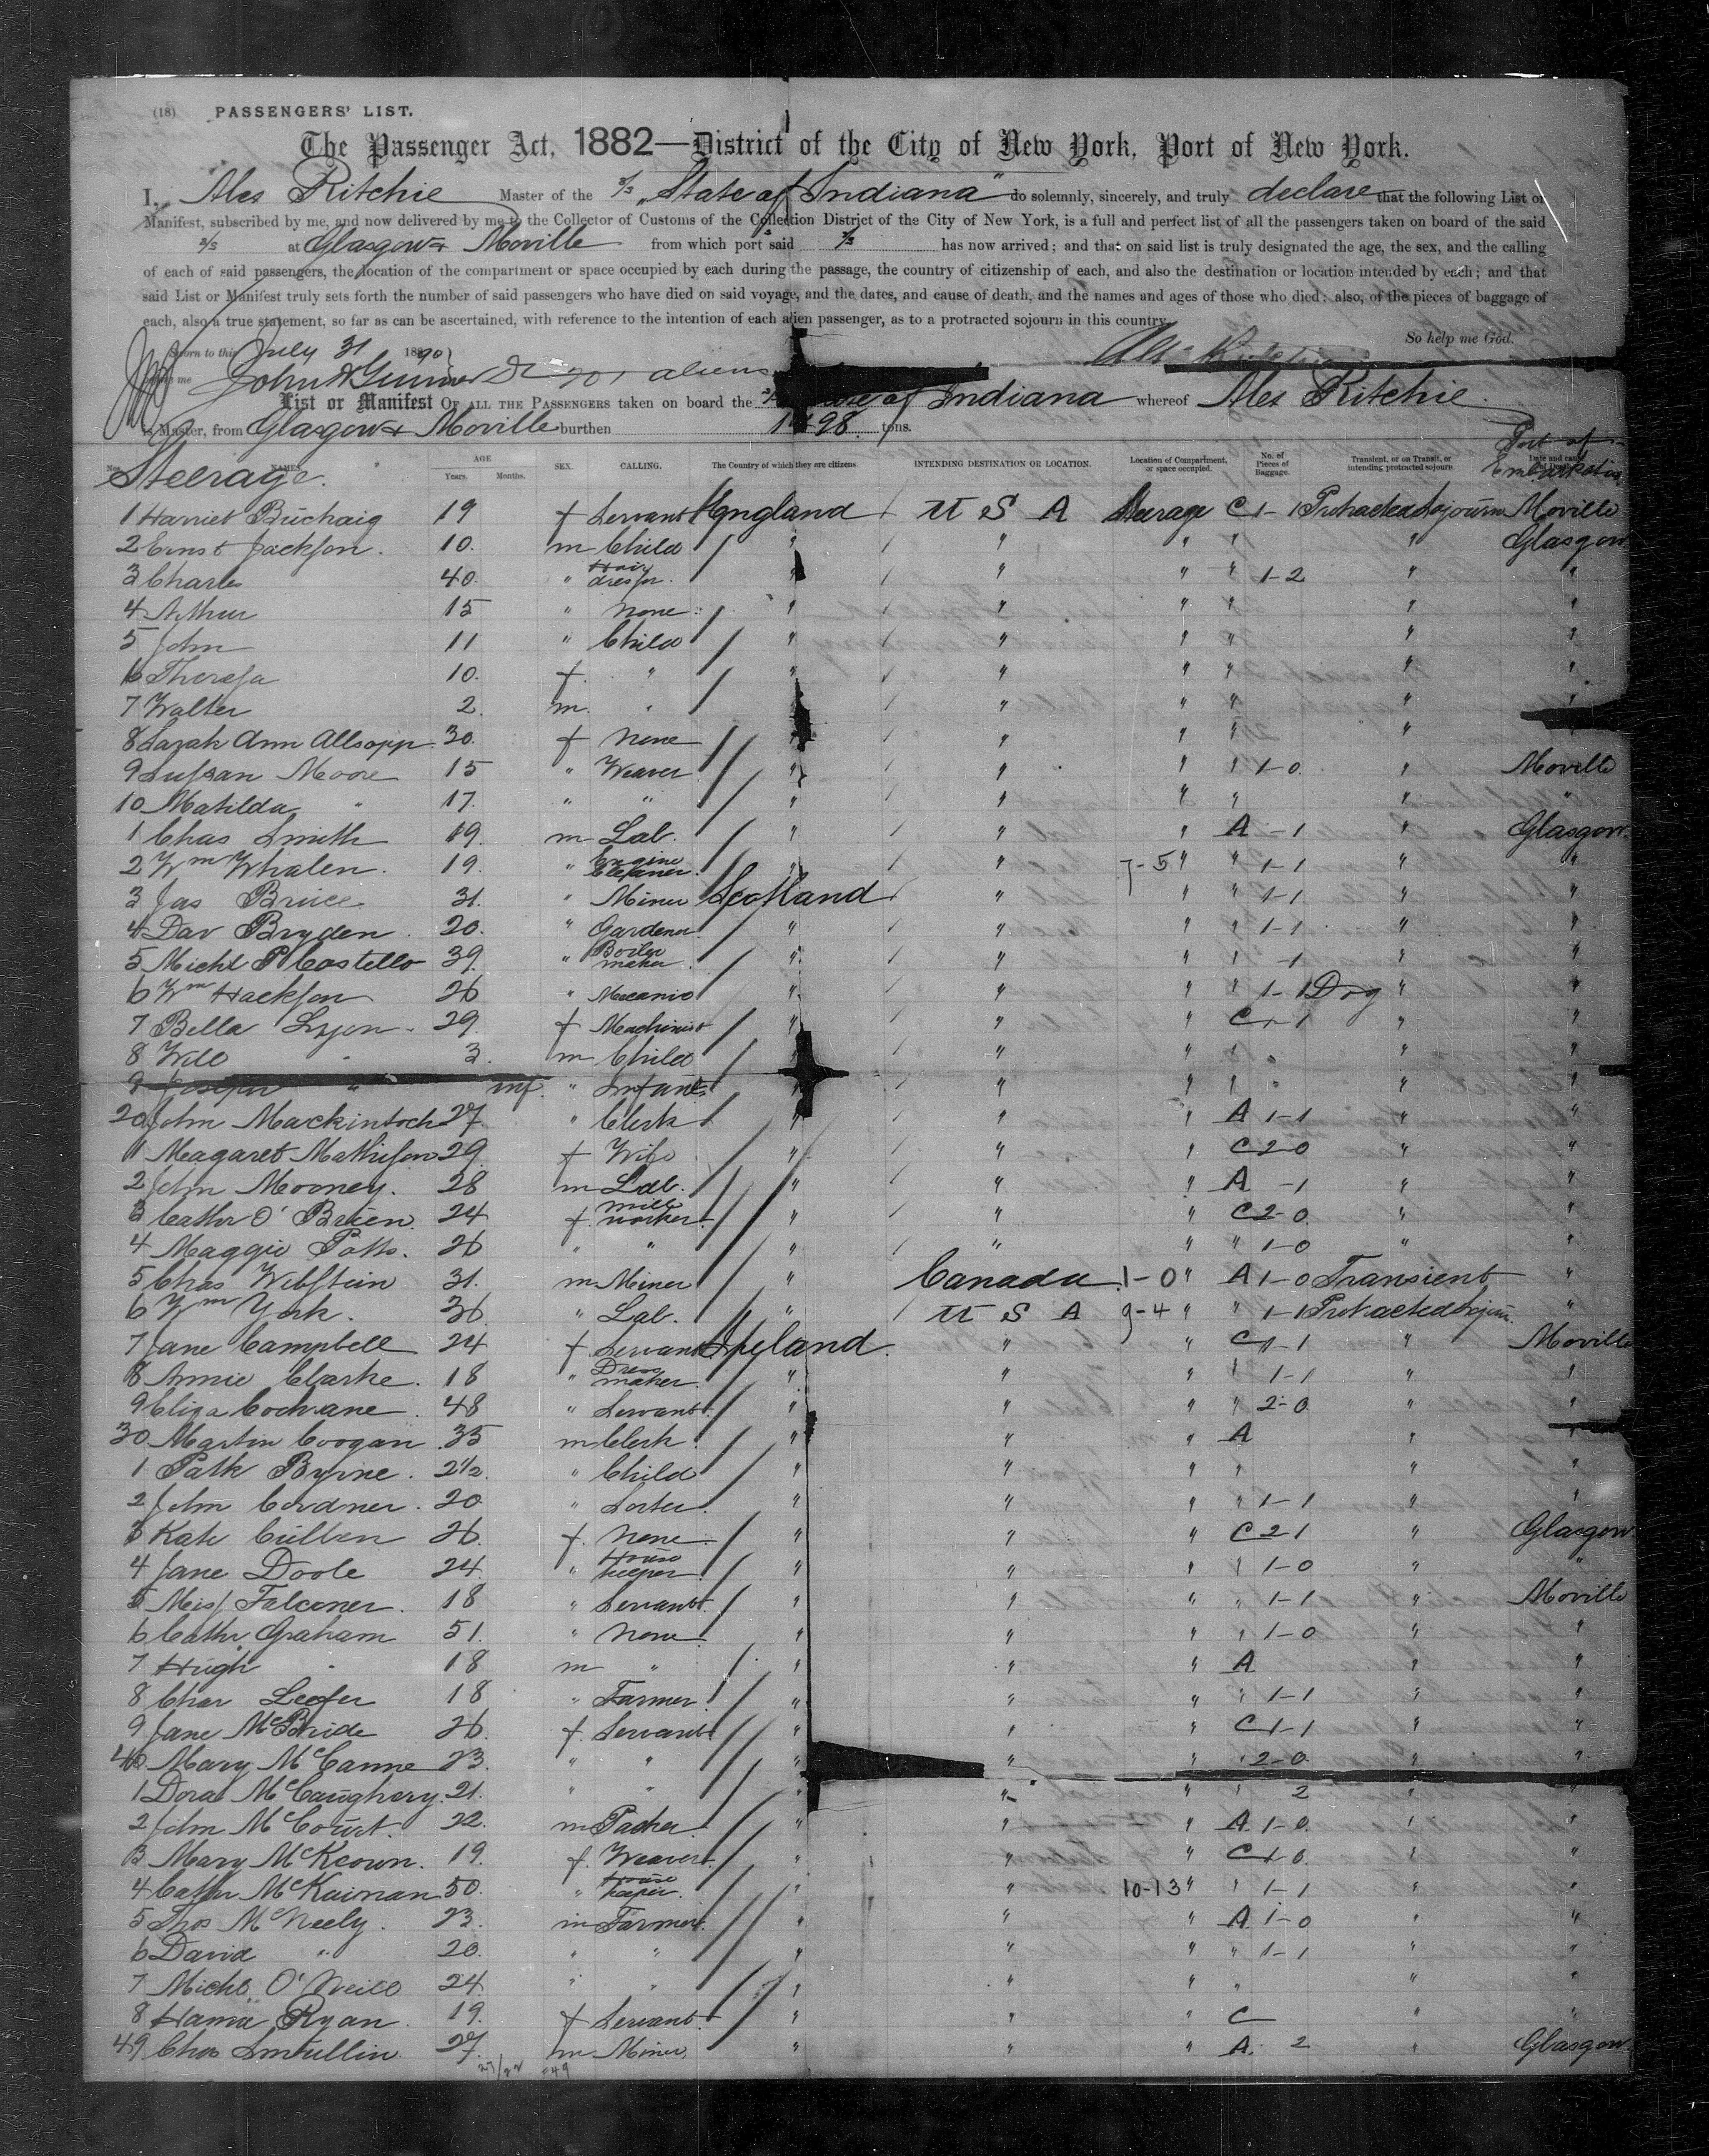 (18) PASSENGERS' LIST.
The Passenger Act, 1882—District of the City of New York, Port of New York.
I, Alex Ritchie Master of the S/S "State of Indiana" do solemnly, sincerely, and truly declare that the following List or
Manifest, subscribed by me, and now delivered by me to the Collector of Customs of the Collection District of the City of New York, is a full and perfect list of all the passengers taken on board of the said
S/S at Glasgow & Moville from which port said S/S has now arrived; and that on said list is truly designated the age, the sex, and the calling
of each of said passengers, the location of the compartment or space occupied by each during the passage, the country of citizenship of each, and also the destination or location intended by each; and that
said List or Manifest truly sets forth the number of said passengers who have died on said voyage, and the dates, and cause of death, and the names and ages of those who died; also, of the pieces of baggage of
each, also a true statement, so far as can be ascertained, with reference to the intention of each alien passenger, as to a protracted sojourn in this country.
So help me God.
Sworn to this July 31 1890 Alex Ritchie
me John aliens
List or Manifest OF ALL THE PASSENGERS taken on board the of Indiana whereof Alex Ritchie
is Master, from Glasgow & Moville burthen tons.
Port of Embarkation
No. NAMES. AGE Years. Months. SEX. CALLING. The Country of which they are citizens. INTENDING DESTINATION OR LOCATION. Location of Compartment, or space occupied. No. of Pieces of Baggage. Transient, or on Transit, or intending protracted sojourn. Date and cause
Steerage.
1 Harriet 19 f Servant England U S A Steerage C 1-1 Protracted Sojourn Moville
2 Ernst Jackson. 10. m Child " " " " " Glasgow
3 Charles 40. " Hair dresser. " " " " 1-2 " "
4 Arthur 15 " None " " " " " "
5 John 11 " Child " " " " " "
6 Theresa 10. f. " " " " " " "
7 Walter 2. m. " " " " " " "
8 Sarah Ann Allsopp 30. f None " " " " " "
9 Sussan Moore 15 " Weaver " " " " 1-0. " Moville
10 Matilda " 17. " " " " " " " "
1 Chas Smith 19. m Lab. " " " A -1 " Glasgow.
2 Wm Whalen. 19. " Engine Cleaner. " " 7-5 " " 1-1 " "
3 Jas Bruce 31. " Miner Scotland " " " 1-1 " "
4 Dav Bryden. 20. " Gardener " " " " 1-1 " "
5 Michl P Costello 39. " Boiler maker. " " " " -1 " "
6 Wm Hackson 26 " Mecanic " " " " 1-1 Dog " "
7 Bella Lyon. 29. f Meachinist " " " C 1-1 " "
8 Will " 3. m Child " " " " " "
9 Joseph " inf. " Infant " " " " " "
20 John Mackintoch 27. " Clerk " " " A 1-1 " "
1 Magaret Mathieson 29. f Wife " " " C 2-0 " "
2 John Mooney. 28 m Lab. " " " A -1 " "
3 Cathr O'Brien. 24 f. Mill worker. " " " C 2-0. " "
4 Maggie Potts. 26 " " " " " " 1-0 " "
5 Chas Webstein 31. m Miner " Canada 1-0 " A 1-0 Transient "
6 Wm York. 36 " Lab. " U S A 9-4 " " 1-1 Protracted Sojourn. "
7 Jane Campbell 24 f Servant Ireland. " " C 1-1 " Moville
8 Annie Clarke. 18 " Dress maker. " " " " 1-1 " "
9 Eliza Cochrane. 48 " Servant. " " " " 2-0. " "
30 Martin Coogan. 35 m Clerk. " " " A " "
1 Patk Byrne. 2½. " Child " " " " " "
2 John Cordner. 20 " Sorter. " " " " 1-1 " "
3 Kate Cullen 26. f. None. " " " C 2 1 " Glasgow
4 Jane Doole 24. " House keeper. " " " " 1-0 " "
5 Miss Falconer. 18 " Servant. " " " " 1-1 " Moville
6 Cathr. Graham 51. " None " " " " 1-0 " "
7 Hugh " 18 m " " " " A " "
8 Char 18 " Farmer " " " " 1-1 " "
9 Jane McBride 26. f. Servant " " " C 1-1 " "
40 Mary McCanne 23. " " " " " " 2-0. " "
1 Dora McCaughery. 21. " " " " " " 2 " "
2 John McCourt. 22. m Packer. " " " A. 1-0. " "
3 Mary McKeown. 19. f. Weaver. " " " C 1-0. " "
4 Cathr McKairnan 50. " House keeper. " " 10-13 " " 1-1 " "
5 Thos McNeely. 23. m Farmer. " " " A 1-0 " "
6 David " 20. " " " " " " 1-1 " "
7 Michl. O'Neill 24. " " " " " " " "
8 Ryan. 19. f Servant. " " " C " "
49 Chas Smullin. 27. m Miner. " " " A. 2 " Glasgow.